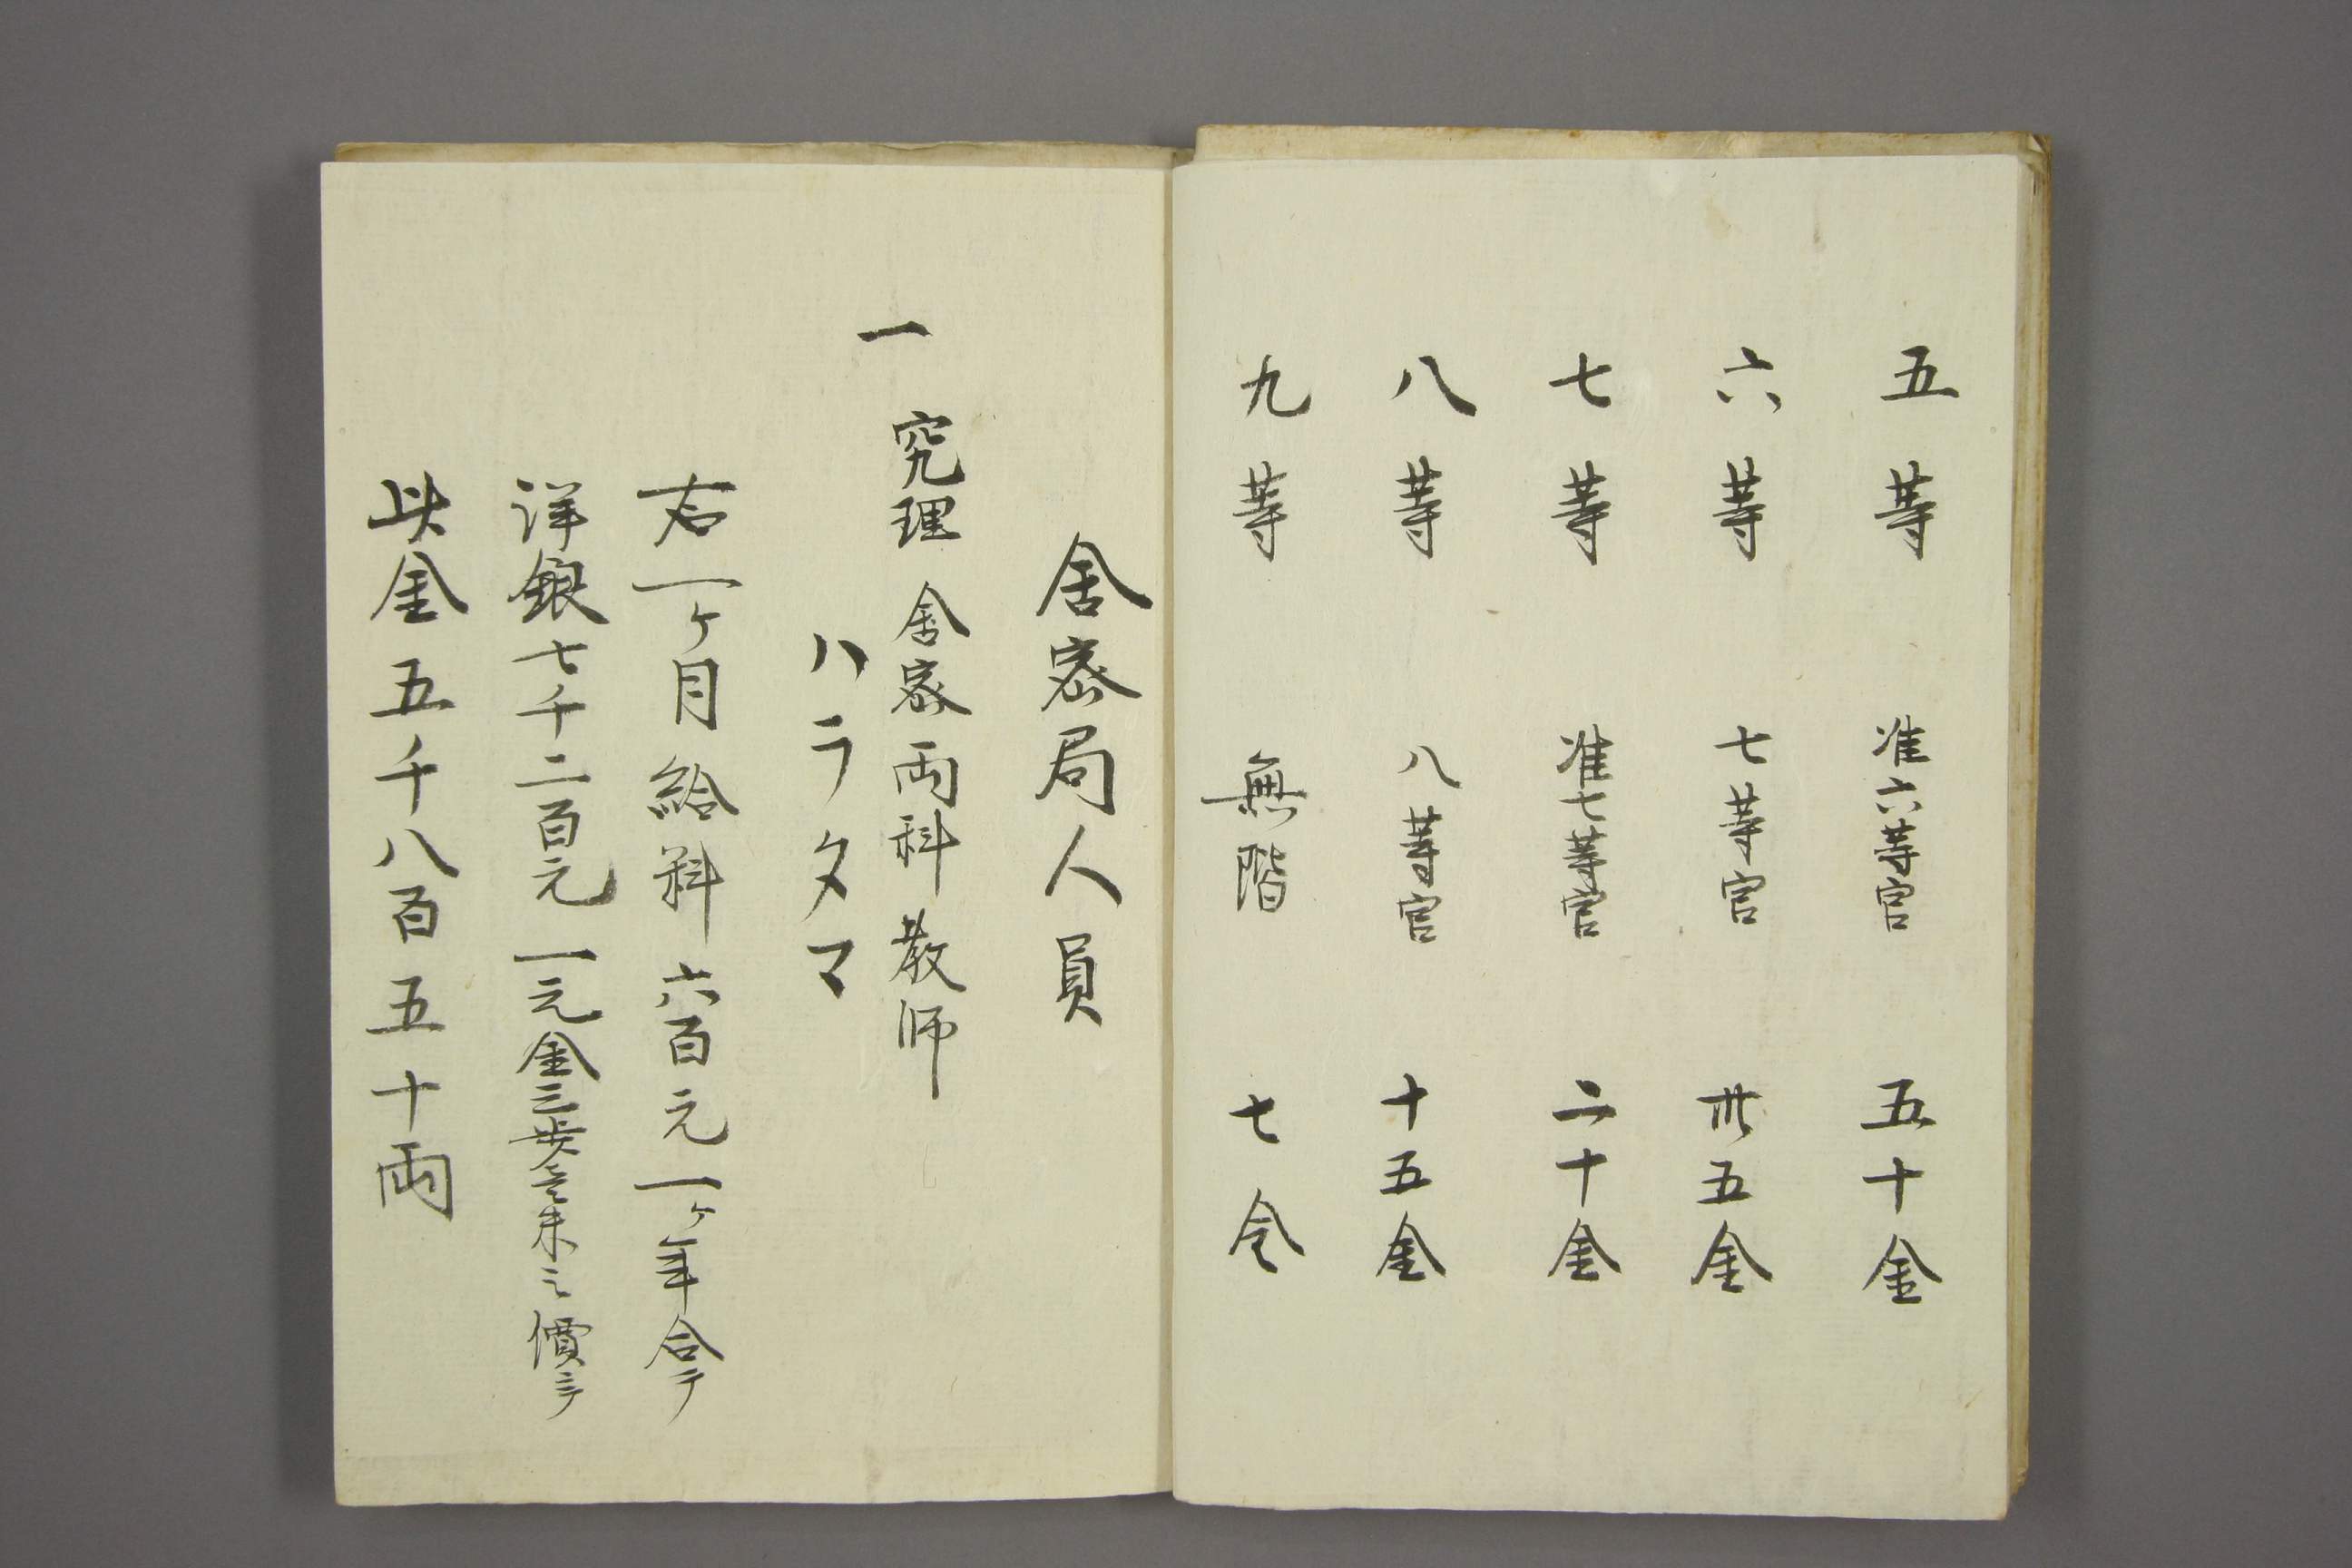 五等　准六等官　五十金
六等　七等官　卅五金
七等　准七等官　二十金
八等　八等官　十五金
九等　無階　七金
舎密局人員
一　究理舎密両科教師
ハラタマ
右一ケ月給料六百元一ケ年合テ
洋銀七千二百元一元金三歩壱朱之價ニテ
此金五千八百五十両